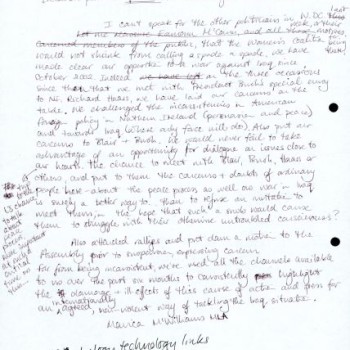 I can't speak for the other politicians in W. DC this
week, or their
Let me reassure Eamonn McCann, and all those
concerned members of the public, that the Women's Coalition motives,
would not shrink from calling a spade a spade, we have being there
made clear our opposition to a war against Iraq since
October 2002. Indeed in the three occasions
since then that we met with President Bush's special envoy
to NI, Richard Haass, we have laid our concerns on the
table. We challenged the inconsistencies in American
policy in Northern Ireland (persuasion and peace)
and towards Iraq (where only force will do). Also put our
concerns to Blair + Bush. We would never fail to take
advantage of any opportunity for dialogue on issues close to
our hearts. The chance to meet with Blair, Bush, Haass or
others, and put to them the concerns + doubts of ordinary
people here - about the peace process as well as war in Iraq
is surely a better way to than to refuse an invitation to
meet them, in the hope that such a snub would cause
them to struggle with their otherwise untroubled consciences?
Also attended rallies and put down a motion to the
Assembly prior to suspension, expressing concern
Far from being inconsistent, we've used all the channels available
to us over the past six months to consistently highlight
the damage + ill effects of this course of action and press for
internationally
an agreed, non-violent way of tackling the Iraq situation.
Monica McWilliams MLA
technology links